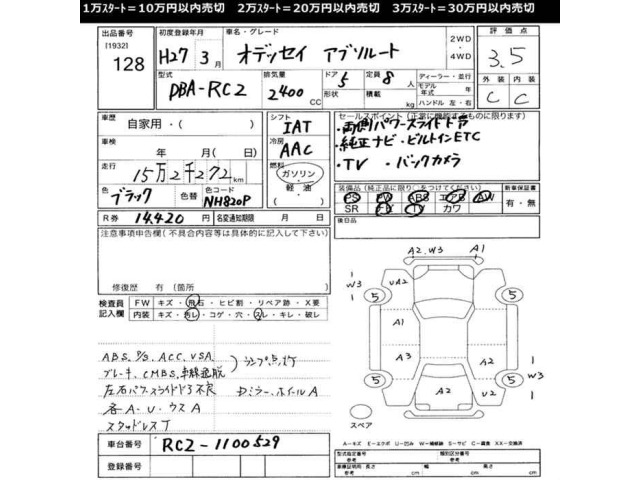 1万スタート=10万円以内売切 2万スタート=20万円以内売切 3万スタート=30万円以内売切
出品番号
[1932]
128
初度登録年月
H27 3月
車名・グレード
オデッセイ アブソルート
2WD
・
4WD
評価点
3.5
型式
DBA-RC2
排気量
2400 CC
ドア
5
形状
定員
8人
積載 kg
ディーラー・並行
モデル年式 年
ハンドル 左・右
外装 内装
C C
車歴
自家用・( )
車検
年 月( )
走行
15万2千272km
色
ブラック
色替
色コード
NH820P
R券
14,420円
名変通知期限 月 日
シフト
IAT
冷房
AAC
燃料
ガソリン
・
軽油
・
( )
セールスポイント(正常に機能するものに限ります)
・両側パワースライドドア
・純正ナビ・ビルトインETC
・TV ・バックカメラ
装備品(純正品に限り○をつけてください)
PS PW ABS エアB AW
SR TV カワ
新車保証書
有・無
後日品
注意事項申告欄(不具合内容等は具体的に記入して下さい)
修復歴 有(箇所 )
検査員記入欄
FW キズ・飛石・ヒビ割・リペア跡・X要
内装 キズ・汚レ・コゲ・穴・スレ・キレ・破レ
ABS、P/S、ACC、VSA
ブレーキ、CMBS、車線逸脱 ランプ点灯
左右パワースライドドア不良 Dミラー、ホイールA
各A・U・ウスA
スタッドレスT
車台番号
RC2-1100529
登録番号
A2、W3 A1
W3 UA2
5 5
A1
A3 A2
A2 UA2
5 5
W3
スペア
A-キズ E-エクボ U-凹み W-補修跡 S-サビ C-腐食 XX-交換済
型式指定番号
参考
類別区分番号
参考
車庫証明用
参考
長さ cm 幅 cm 高さ cm